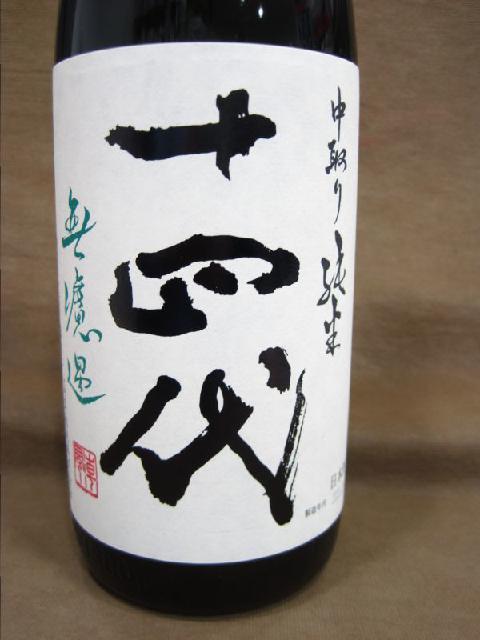 中取り純米
十四代
無濾過
製造年月
日本